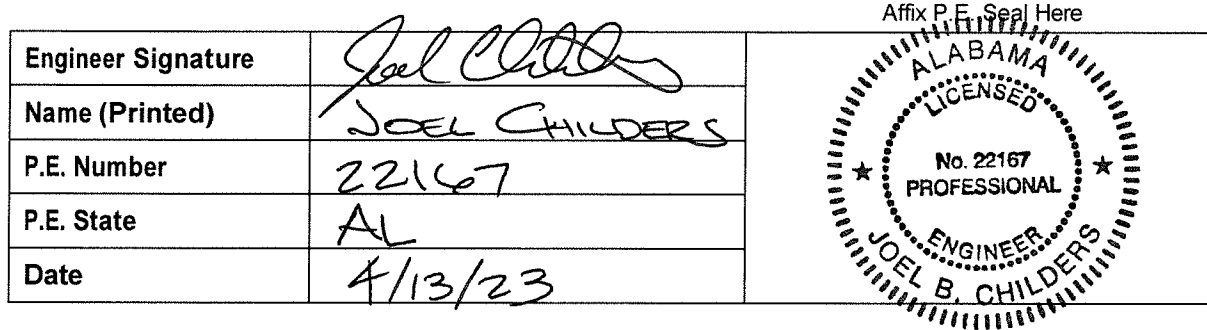 Affix P.E. Seal Here
Engineer Signature Joel Childers
Name (Printed) JOEL CHILDERS
P.E. Number 22167
P.E. State AL
Date 4/13/23
ALABAMA
LICENSED
No. 22167
PROFESSIONAL
ENGINEER
JOEL B. CHILDERS